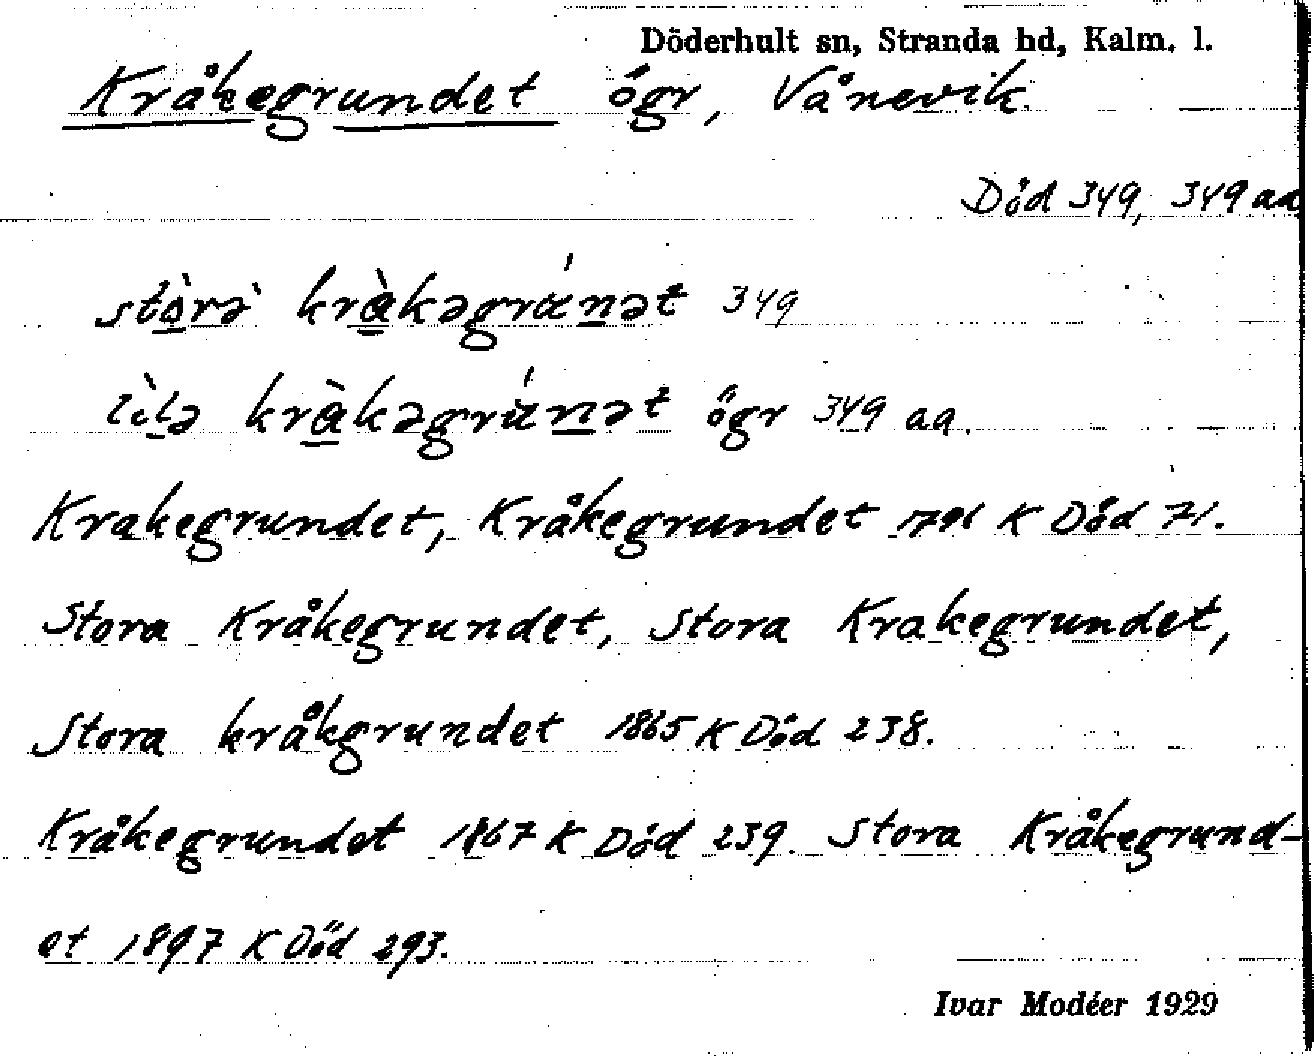 Döderhult sn, Stranda hd, Kalm. l.
Kråkegrundet ögr, Vånevik.
Död 349, 349 aa
stòrə̀ kràkəgrúnət 349
lìlə kràkəgrúnət ögr 349 aa.
Krakegrundet, Kråkegrundet K Död 71.
Stora Kråkegrundet, Stora Krakegrundet,
Stora kråkgrundet 1865 K Död 238.
Kråkegrundet 1867 K Död 239. Stora Kråkegrund-
et 1897 K Död 293.
Ivar Modéer 1929